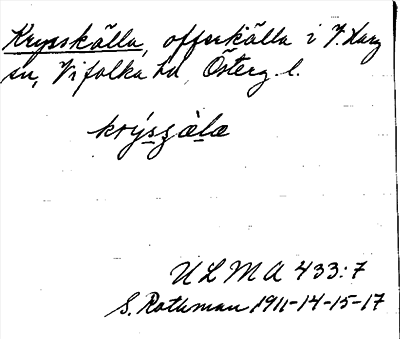 Krysskälla, offerkälla i V. Harg
sn, Vifolka hd, Österg. l.
krýsʒàla
ULMA 433:7
S. Rothman 1911-14-15-17